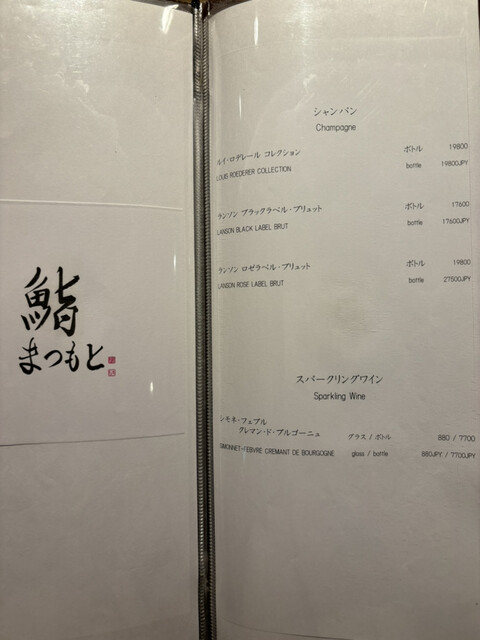 鮨
まつもと
シャンパン
Champagne
ルイ・ロデレール コレクション ボトル 19800
LOUIS ROEDERER COLLECTION bottle 19800JPY
ランソン ブラックラベル・ブリュット ボトル 17600
LANSON BLACK LABEL BRUT bottle 17600JPY
ランソン ロゼラベル・ブリュット ボトル 19800
LANSON ROSE LABEL BRUT bottle 27500JPY
スパークリングワイン
Sparkling Wine
シモネ・フェブル
クレマン・ド・ブルゴーニュ グラス / ボトル 880 / 7700
SIMONNET-FEBVRE CREMANT DE BOURGOGNE glass / bottle 880JPY / 7700JPY